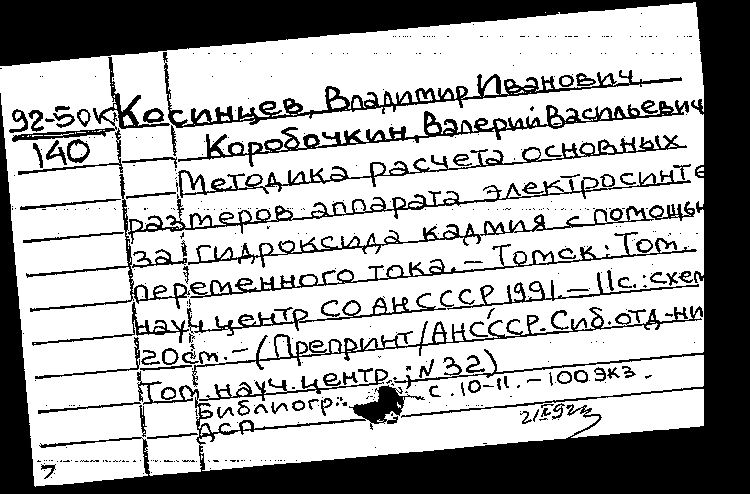 92-50К Косинцев, Владимир Иванович,
140 Коробочкин, Валерий Васильевич
Методика расчета основных
размеров аппарата электросинте
за гидроксида кадмия с помощью
переменного тока. – Томск: Том.
науч. центр СО АН СССР, 1991. – 11 с.: схем
20 см. – (Препринт/АН СССР. Сиб. отд-ни
Том. науч. центр.; N 32)
Библиогр.: с. 10-11. – 100 экз.
ДСП